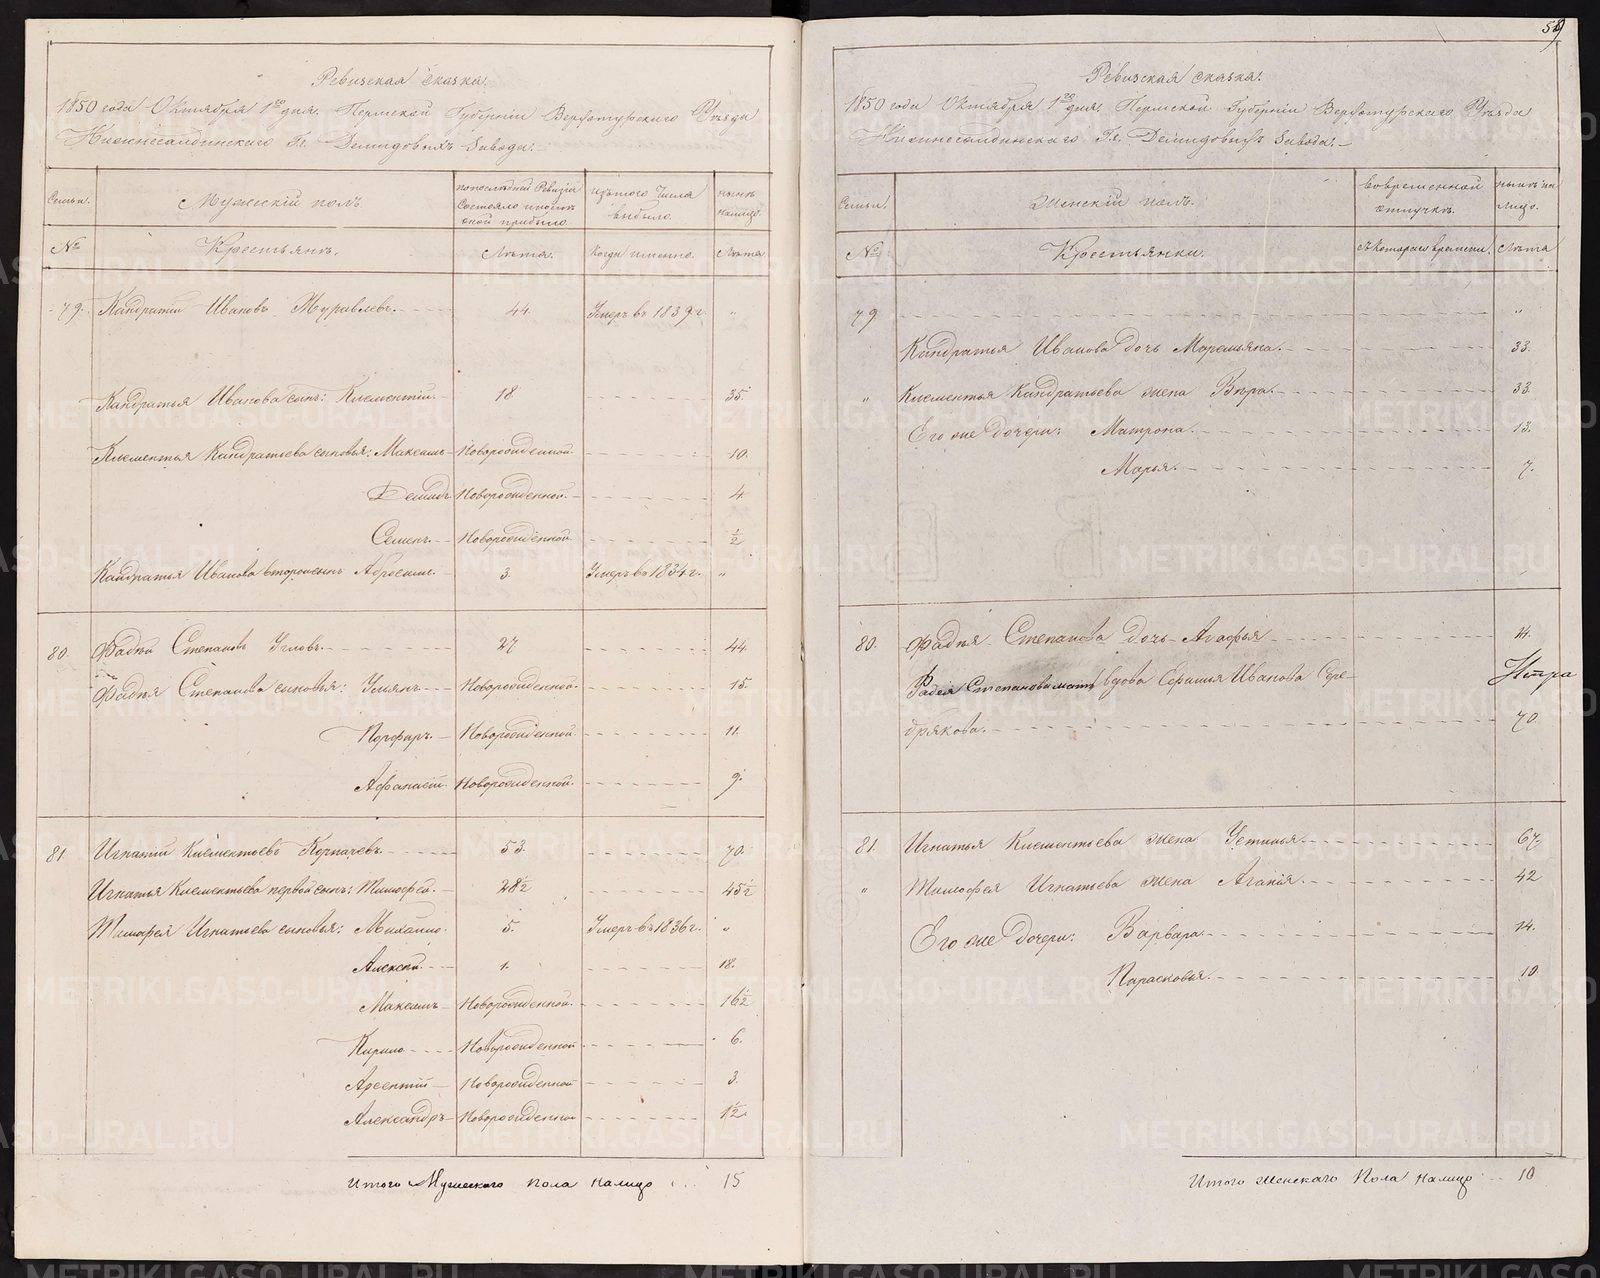 Ревизская сказка.
1850 года Октября 1го дня. Пермской Губерніи Верхотурскаго Уѣзда
Нижнесалдинскаго Гг. Демидовыхъ Завода.
Семьи.
Мужескій полъ
по последней Ревизіи состояло и после оной прибыло
изъ того числа выбыло.
нынѣ налицо.
№
Крестьянъ.
Лѣта.
Когда именно.
Лѣта
79. Кондратій Ивановъ Журавлевъ. 44. Умеръ въ 1839 г. „
Кондратья Иванова сынъ: Клементій. 18 35.
Клементья Кондратьева сыновья: Максимъ Новорожденной. 10.
Демидъ Новорожденной. 4.
Семенъ. Новорожденной ½
Кондратья Иванова второй сынъ Абросимъ. 3. Умеръ въ 1834 г. „
80. Фадѣй Степановъ Угловъ. 27 44.
Фадѣя Степанова сыновья: Ульянъ Новорожденной. 15.
Порфиръ. Новорожденной. 11.
Афанасій Новорожденной. 9.
81 Игнатій Клементьевъ Корпачевъ. 53. 70.
Игнатья Клементьева первой сынъ: Тимофей. 28½ 45½
Тимофея Игнатьева сыновья: Михайло. 5. Умеръ въ 1836 г. „
Алексѣй. 1. 18.
Максимъ Новорожденной. 16½
Кирило Новорожденной 6.
Арсентій Новорожденной 3.
Александръ Новорожденной 1½
Итого Мужескаго пола налицо 15
59
Ревизская сказка.
1850 года Октября 1го дня. Пермской Губерніи Верхотурскаго Уѣзда
Нижнесалдинскаго Гг. Демидовыхъ Завода.
Семьи.
Женскій полъ.
во временной отлучкѣ.
нынѣ на лицо.
№
Крестьянки.
Съ котораго времени.
Лѣта
79 „
Кондратья Иванова дочь Маремьяна. 33.
„ Клементья Кондратьева жена Вѣра. 33
Его же дочери: Матрона. 13.
Марья. 7.
80. Фадѣя Степанова дочь Агафья 14.
Фадея Степанова мать вдова Ефимья Иванова Сере-
брякова. 70
81. Игнатья Клементьева жена Устинья. 67
„ Тимофея Игнатьева жена Агапія. 42
Его же дочери: Варвара. 14.
Парасковья. 10.
Итого женскаго пола налицо 10